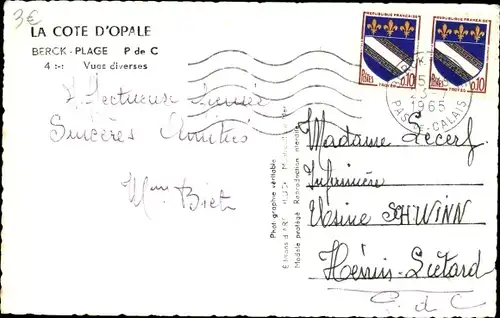 3€
LA COTE D'OPALE
BERCK-PLAGE P de C
4 :-: Vues diverses
REPUBLIQUE FRANÇAISE
REPUBLIQUE FRANÇAISE
POSTES 0,10
TROYES
POSTES 0,10
TROYES
23-7
1965
PAS-DE-CALAIS
Sincères Amitiés
Mme
Photographie véritable
Modèle protégé Reproduction interdite
Madame Lecerf
Infirmière
Usine SCHWINN
Hénin-Liétard
P. de C